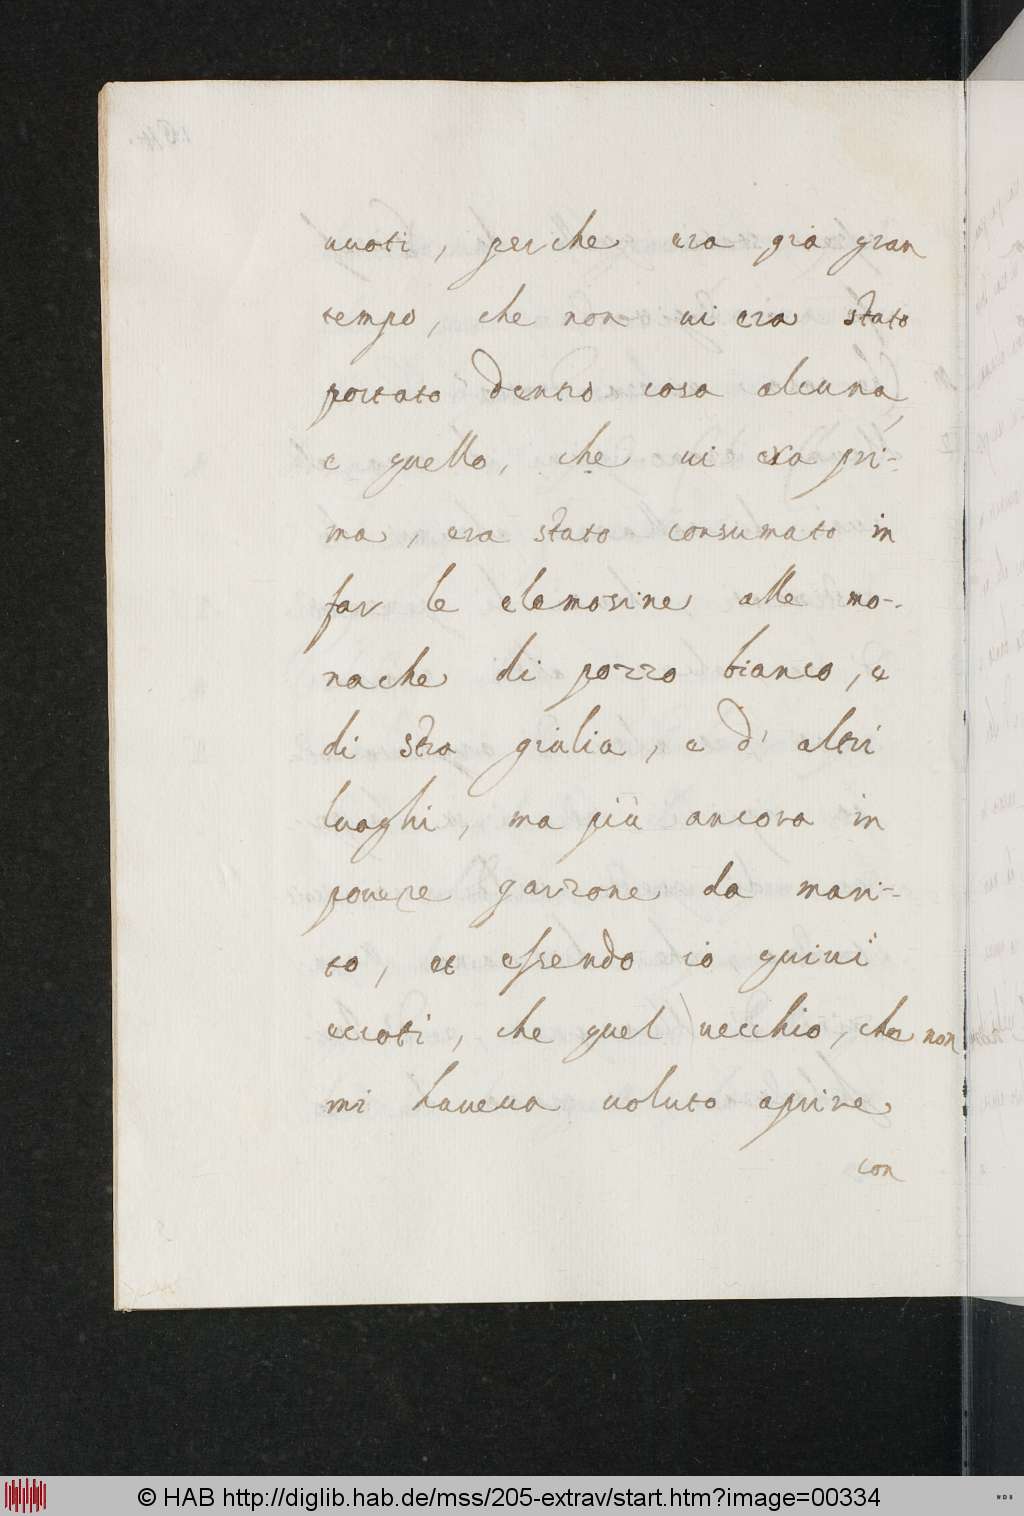 uuoti, perche era già gran
tempo, che non ui era stato
portato dentro cosa alcuna,
e quello, che ui era pri-
ma, era stato consumato in
far le elemosine alle mo-
nache di pozzo bianco, e
di sta giulia, e d' altri
luoghi, ma più ancora in
pouere garzone da mari-
to, et essendo io quiui
ecco ti, che quel uecchio, che non
mi haueua uoluto aprire
con
© HAB http://diglib.hab.de/mss/205-extrav/start.htm?image=00334